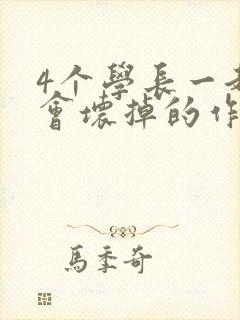 4个學長一起
會壞掉的作
馬季奇